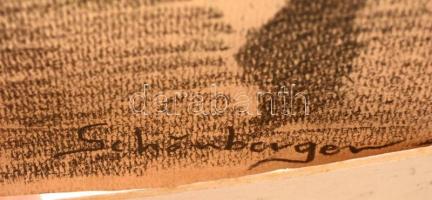 darabanth
Schönberger